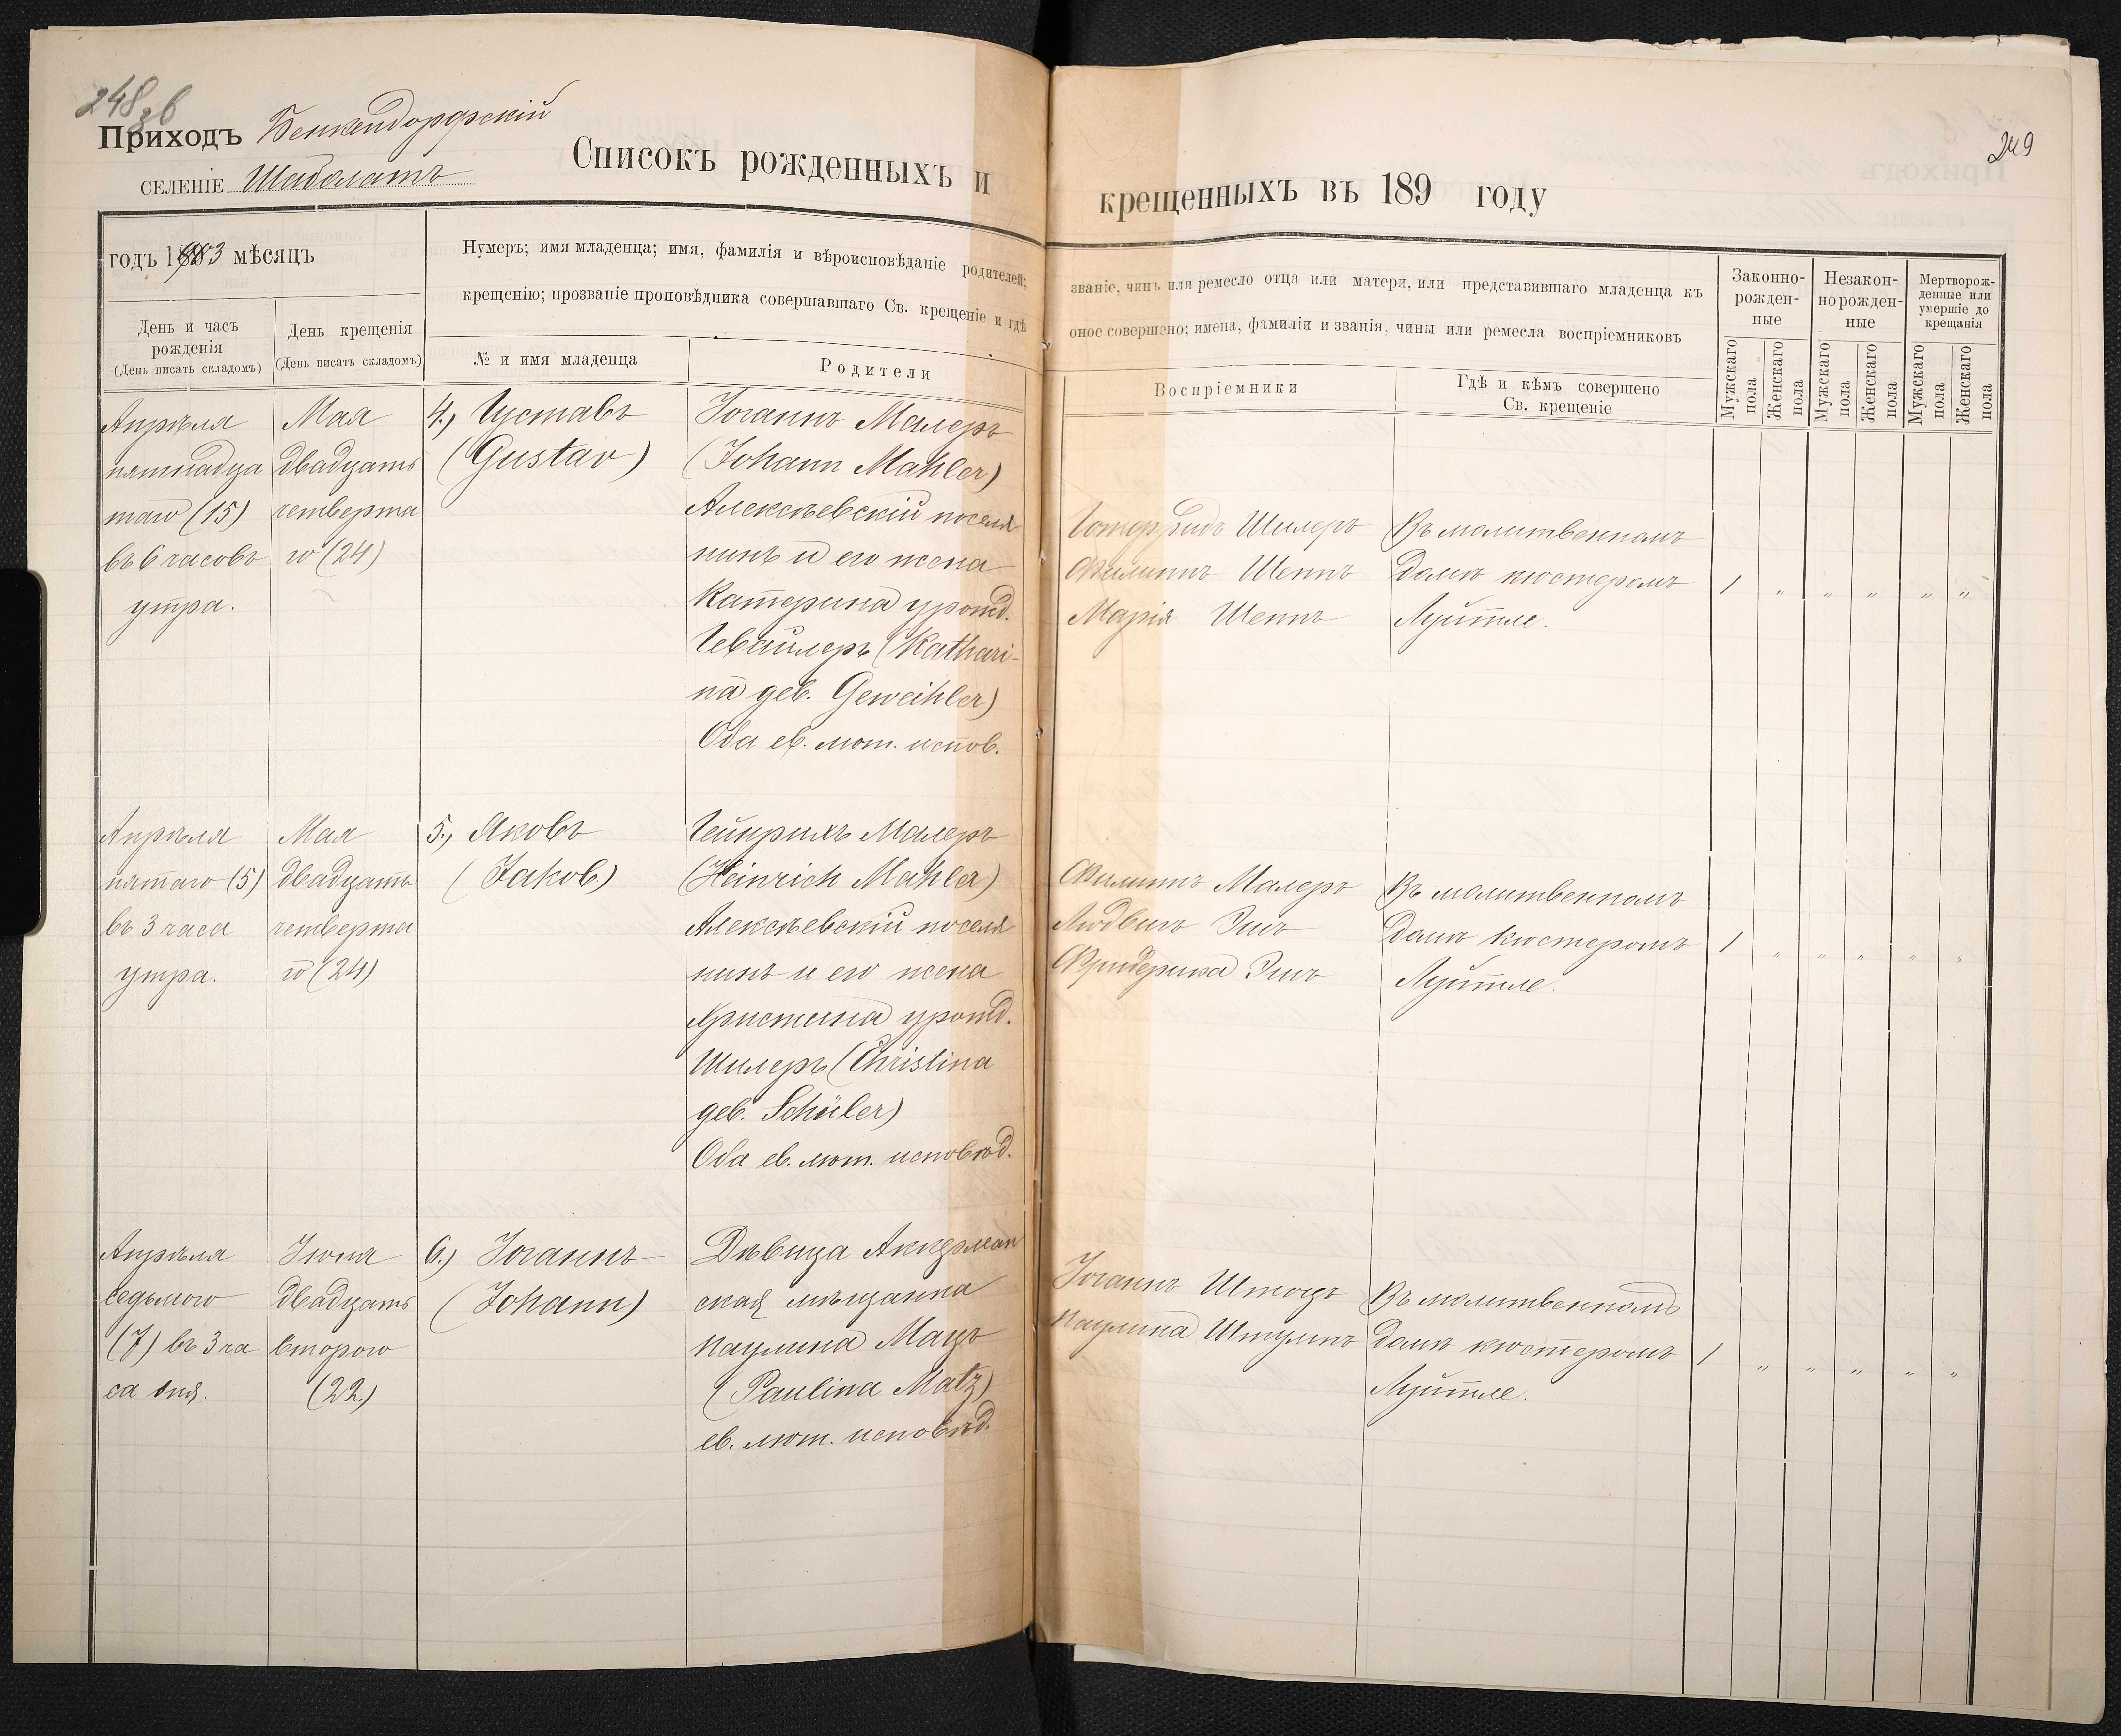 248 зв
Приходъ Бенкендорфскій
селеніе Шаболатъ
Списокъ рожденныхъ и
крещенныхъ въ 189 году
249
годъ 1903 мѣсяцъ
День и часъ
рожденія
(День писать складомъ)
День крещенія
(День писать складомъ)
Нумеръ; имя младенца; имя, фамилія и вѣроисповѣданіе родителей;
крещенію; прозваніе проповѣдника совершавшаго Св. крещеніе и гдѣ
№ и имя младенца
Родители
званіе, чинъ или ремесло отца или матери, или представившаго младенца къ
оное совершено; имена, фамиліи и званія, чины или ремесла воспріемниковъ
Воспріемники
Гдѣ и кѣмъ совершено
Св. крещеніе
Законно-
рожден-
ные
Незакон-
норожден-
ные
Мертворож-
денные или
умершіе до
крещанія
Мужскаго
пола
Женскаго
пола
Мужскаго
пола
Женскаго
пола
Мужскаго
пола
Женскаго
пола
Апрѣля
пятнадца
таго (15)
въ 6 часовъ
утра.
Мая
двадцать
четверта
го (24)
4.) Густавъ
(Gustav)
Іоганнъ Малеръ
(Johann Mahler)
Алексѣевскій поселя
нинъ и его жена
Катерина урожд.
Гевайлеръ (Kathari-
na geb. Geweihler)
Оба ев. лют. испов.
Готфридъ Шилеръ
Филиппъ Шеппъ
Марія Шеппъ
Въ молитвенномъ
домѣ кюстеромъ
Луйтле.
1 „ „ „ „ „
Апрѣля
пятаго (5)
въ 3 часа
утра.
Мая
двадцать
четверта
го (24)
5.) Яковъ
(Jakob.)
Гейнрихъ Малеръ
(Heinrich Mahler)
Алексѣевскій поселя
нинъ и его жена
Христина урожд.
Шилеръ (Christina
geb. Schüler)
Оба ев. лют. исповѣд.
Филиппъ Малеръ
Людвигъ
Фридерика
Въ молитвенномъ
домѣ кюстеромъ
Луйтле.
1 „ „ „ „ „
Апрѣля
седьмого
(7) въ 3 ча
са дня.
Іюня
двадцать
второго
(22.)
6.) Іоганнъ
(Johann)
Дѣвица Аккерман
ская мѣщанка
Паулина Мацъ
(Paulina Matz)
ев. лют. исповѣд.
Іоганнъ
Паулина
Въ молитвенномъ
домѣ кюстеромъ
Луйтле.
1 „ „ „ „ „